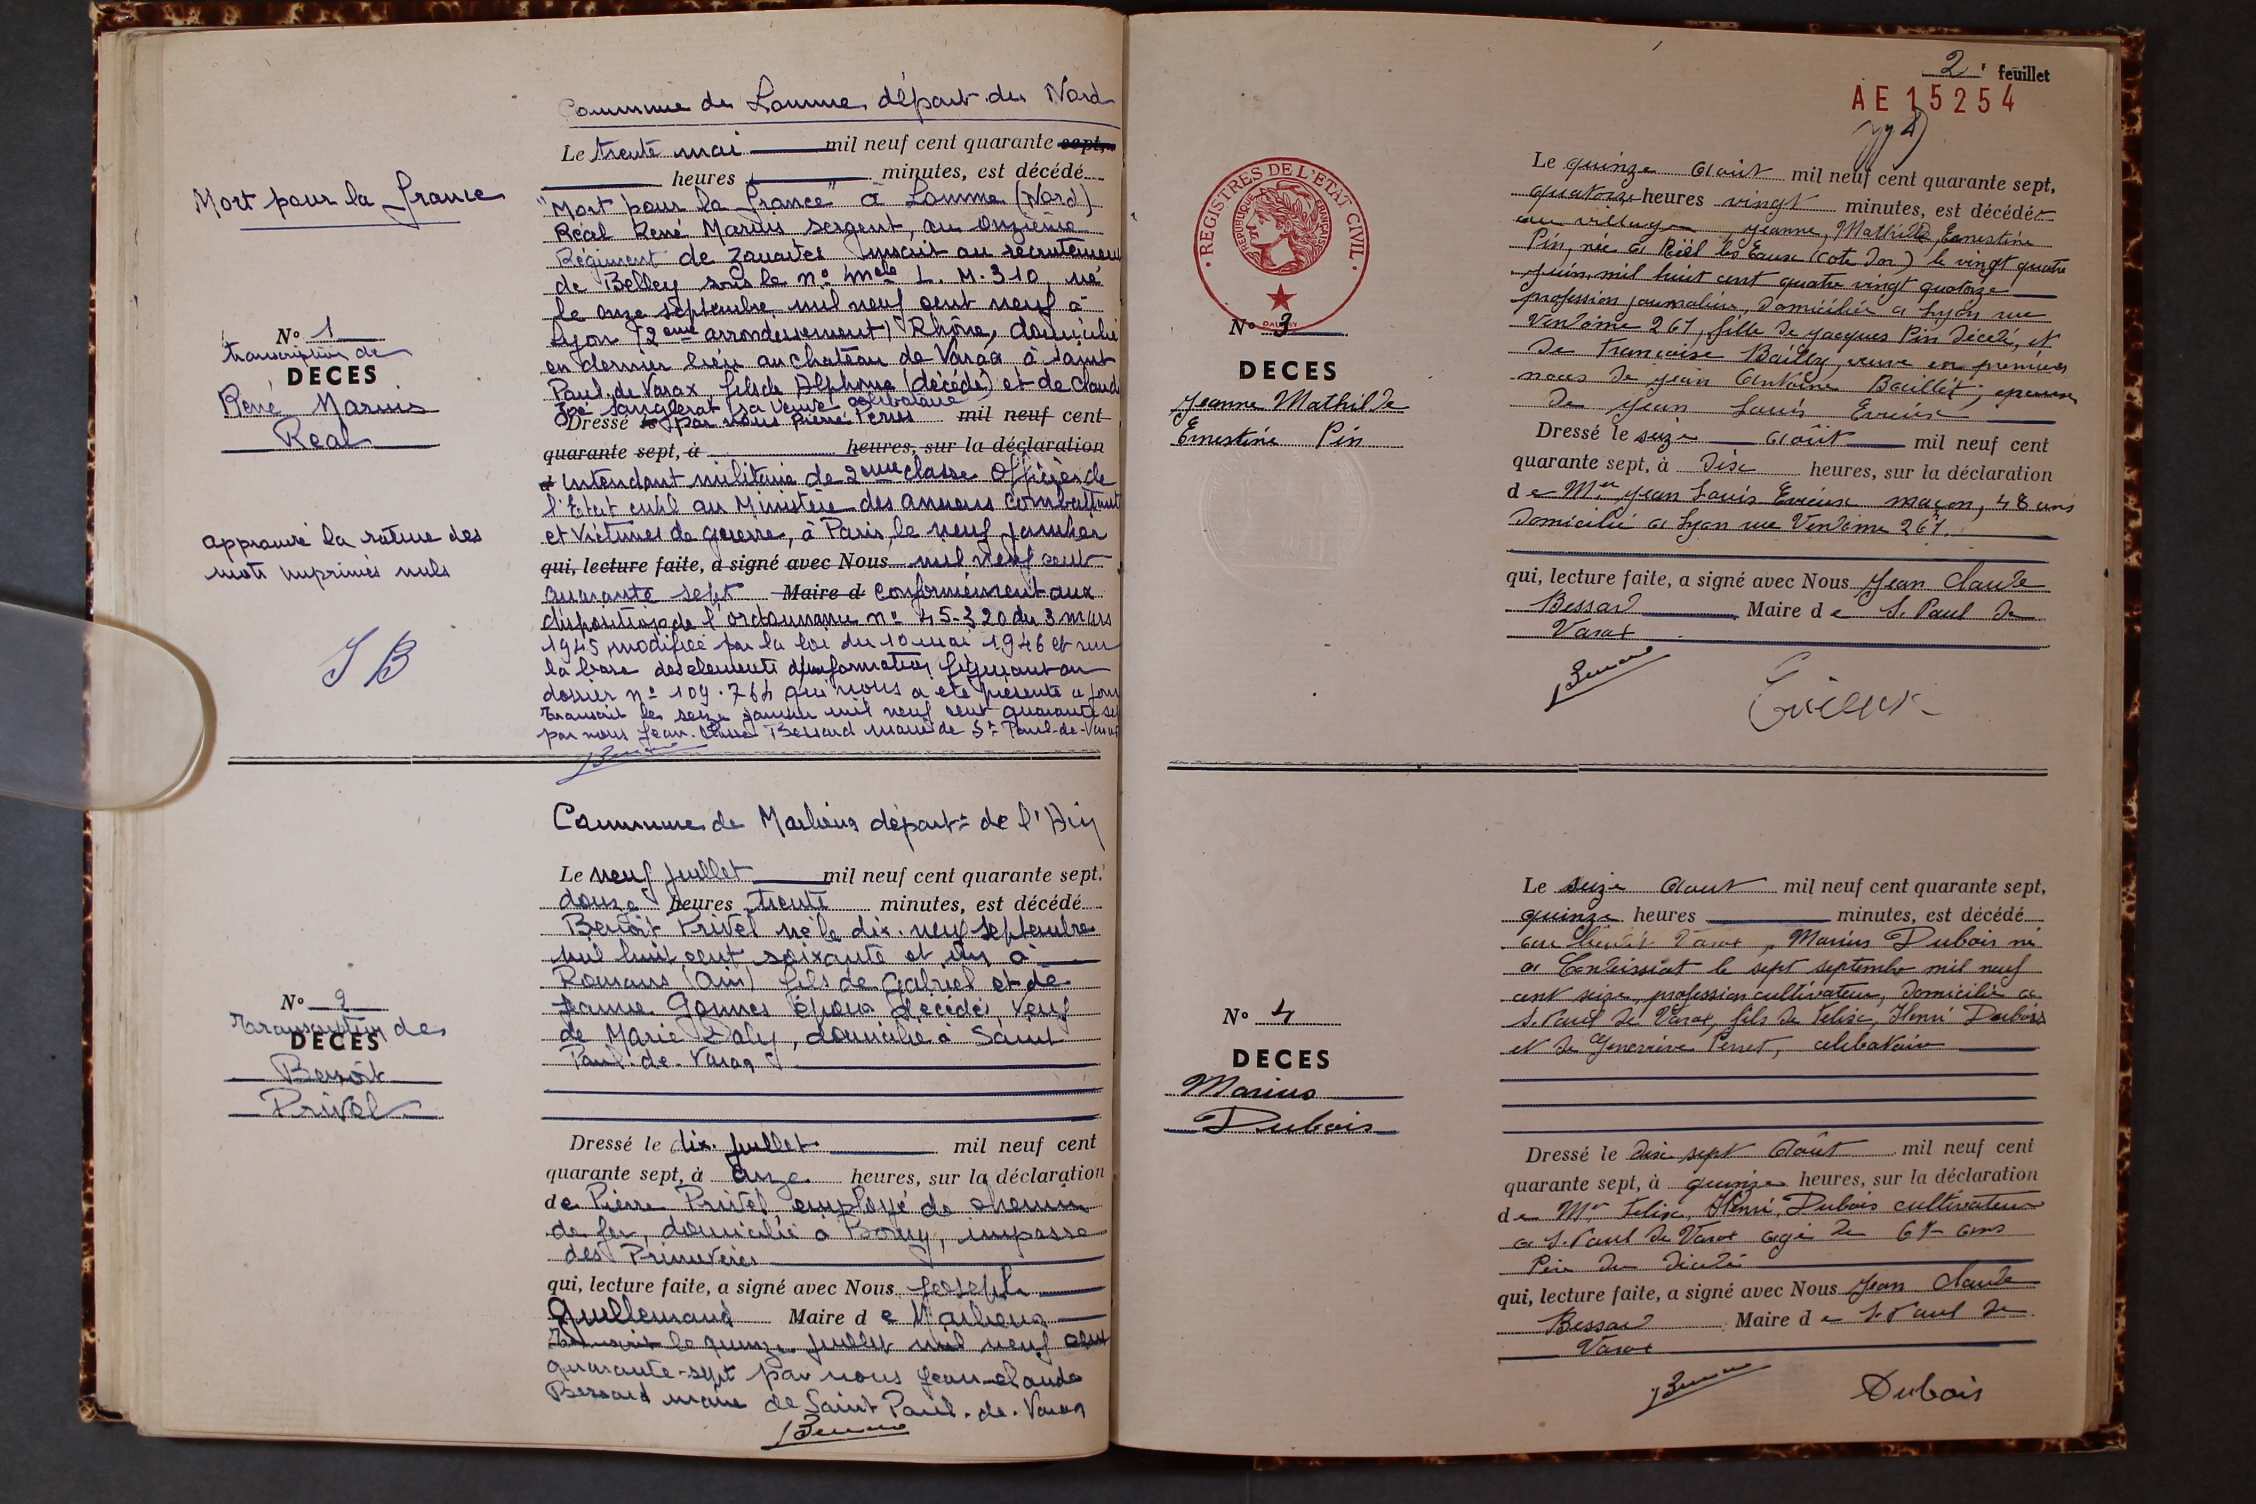 Commune de Lomme, départ. du Nord
Le trente mai mil neuf cent quarante sept,
heures minutes, est décédé
"Mort pour la france" à Lomme (Nord)
Réal René Marius sergent, au onzième
Régiment de zouaves inscrit au recrutement
de Belley sous le nº mle L. M. 310, né
le onze septembre mil neuf cent neuf à
Lyon (2eme arrondissement) Rhône, domicilié
en dernier lieu au chateau de Varax à Saint
Paul de Varax, fils de Alphonse (décédé) et de Claud
sa veuve célibataire
Dressé par nous Pierre mil neuf cent
quarante sept, à heures, sur la déclaration
d Intendant militaire de 2eme classe Officier de
l'Etat civil au Ministère des anciens combattants
et Victimes de guerre, à Paris, le neuf janvier
qui, lecture faite, a signé avec Nous mil neuf cent
quarante sept Maire d conformément aux
dispositions de l'ordonnance nº 45-320 du 3 mars
1945 modifiée par la loi du 10 mai 1946 et sur
la base des elements d'information figurant au
dossier nº 109.764 qui nous a été présenté a
Transcrit le seize janvier mil neuf cent quarante sept
par nous Jean-Claude Bessard maire de St Paul-de-Varax
Mort pour la france
Nº 1
transcription de
DECES
René Marius
Réal
approuvé la rature des
mots imprimés nuls
J B
Commune de Marlieux départt de l'Ain
Le neuf juillet mil neuf cent quarante sept,
douze heures trente minutes, est décédé
Benoît Privel né le dix-neuf septembre
mil huit cent soixante et un à
Romans (Ain) fils de Gabriel et de
Jeanne époux décédés, Veuf
de Marie, domicilié à Saint
Paul-de-Varax
Dressé le dix juillet mil neuf cent
quarante sept, à onze heures, sur la déclaration
de Pierre Privel employé de chemin
de fer, domicilié à Bourg, impasse
des Primevères
qui, lecture faite, a signé avec Nous Joseph
Guillemaud Maire de Marlieux
Transcrit le quinze juillet mil neuf cent
quarante-sept par nous Jean-Claude
Bessard maire de Saint Paul-de-Varax
Nº 2
Transcription de
DECES
Benoît
Privel
2e feuillet
AE 15254
REGISTRES DE L'ÉTAT CIVIL
REPUBLIQUE FRANÇAISE
Nº 3
DECES
Jeanne Mathilde
Ernestine Pin
Le quinze Août mil neuf cent quarante sept,
quatorze heures vingt minutes, est décédée
au village, Jeanne, Mathilde, Ernestine
Pin, née à Riël les Eaux (cote d'or) le vingt quatre
juin, mil huit cent quatre vingt quatorze
profession journalière, domiciliée à Lyon rue
Vendôme 267, fille de Jacques Pin décédé, et
de Françoise Bailly, veuve en premières
noces de Jean Antoine, épouse
de Jean Louis Evieux
Dressé le seize Août mil neuf cent
quarante sept, à dix heures, sur la déclaration
de Mr Jean Louis Evieux maçon, 48 ans
domicilié à Lyon rue Vendôme 267.
qui, lecture faite, a signé avec Nous Jean Claude
Bessard Maire de S. Paul de
Varax
Evieux
Nº 4
DECES
Marius
Dubois
Le seize Aout mil neuf cent quarante sept,
quinze heures minutes, est décédé
au Varax, Marius Dubois né
à Condeissiat le sept septembre mil neuf
cent seize, profession cultivateur, domicilié à
S. Paul de Varax, fils de Felix, Henri Dubois
et de Geneviève Perret, célibataire
Dressé le dix sept Août mil neuf cent
quarante sept, à quinze heures, sur la déclaration
de Mr Felix, Henri, Dubois cultivateur
à S. Paul de Varax agé de 67 ans
Père du décédé
qui, lecture faite, a signé avec Nous Jean Claude
Bessard Maire de S. Paul de
Varax
Dubois